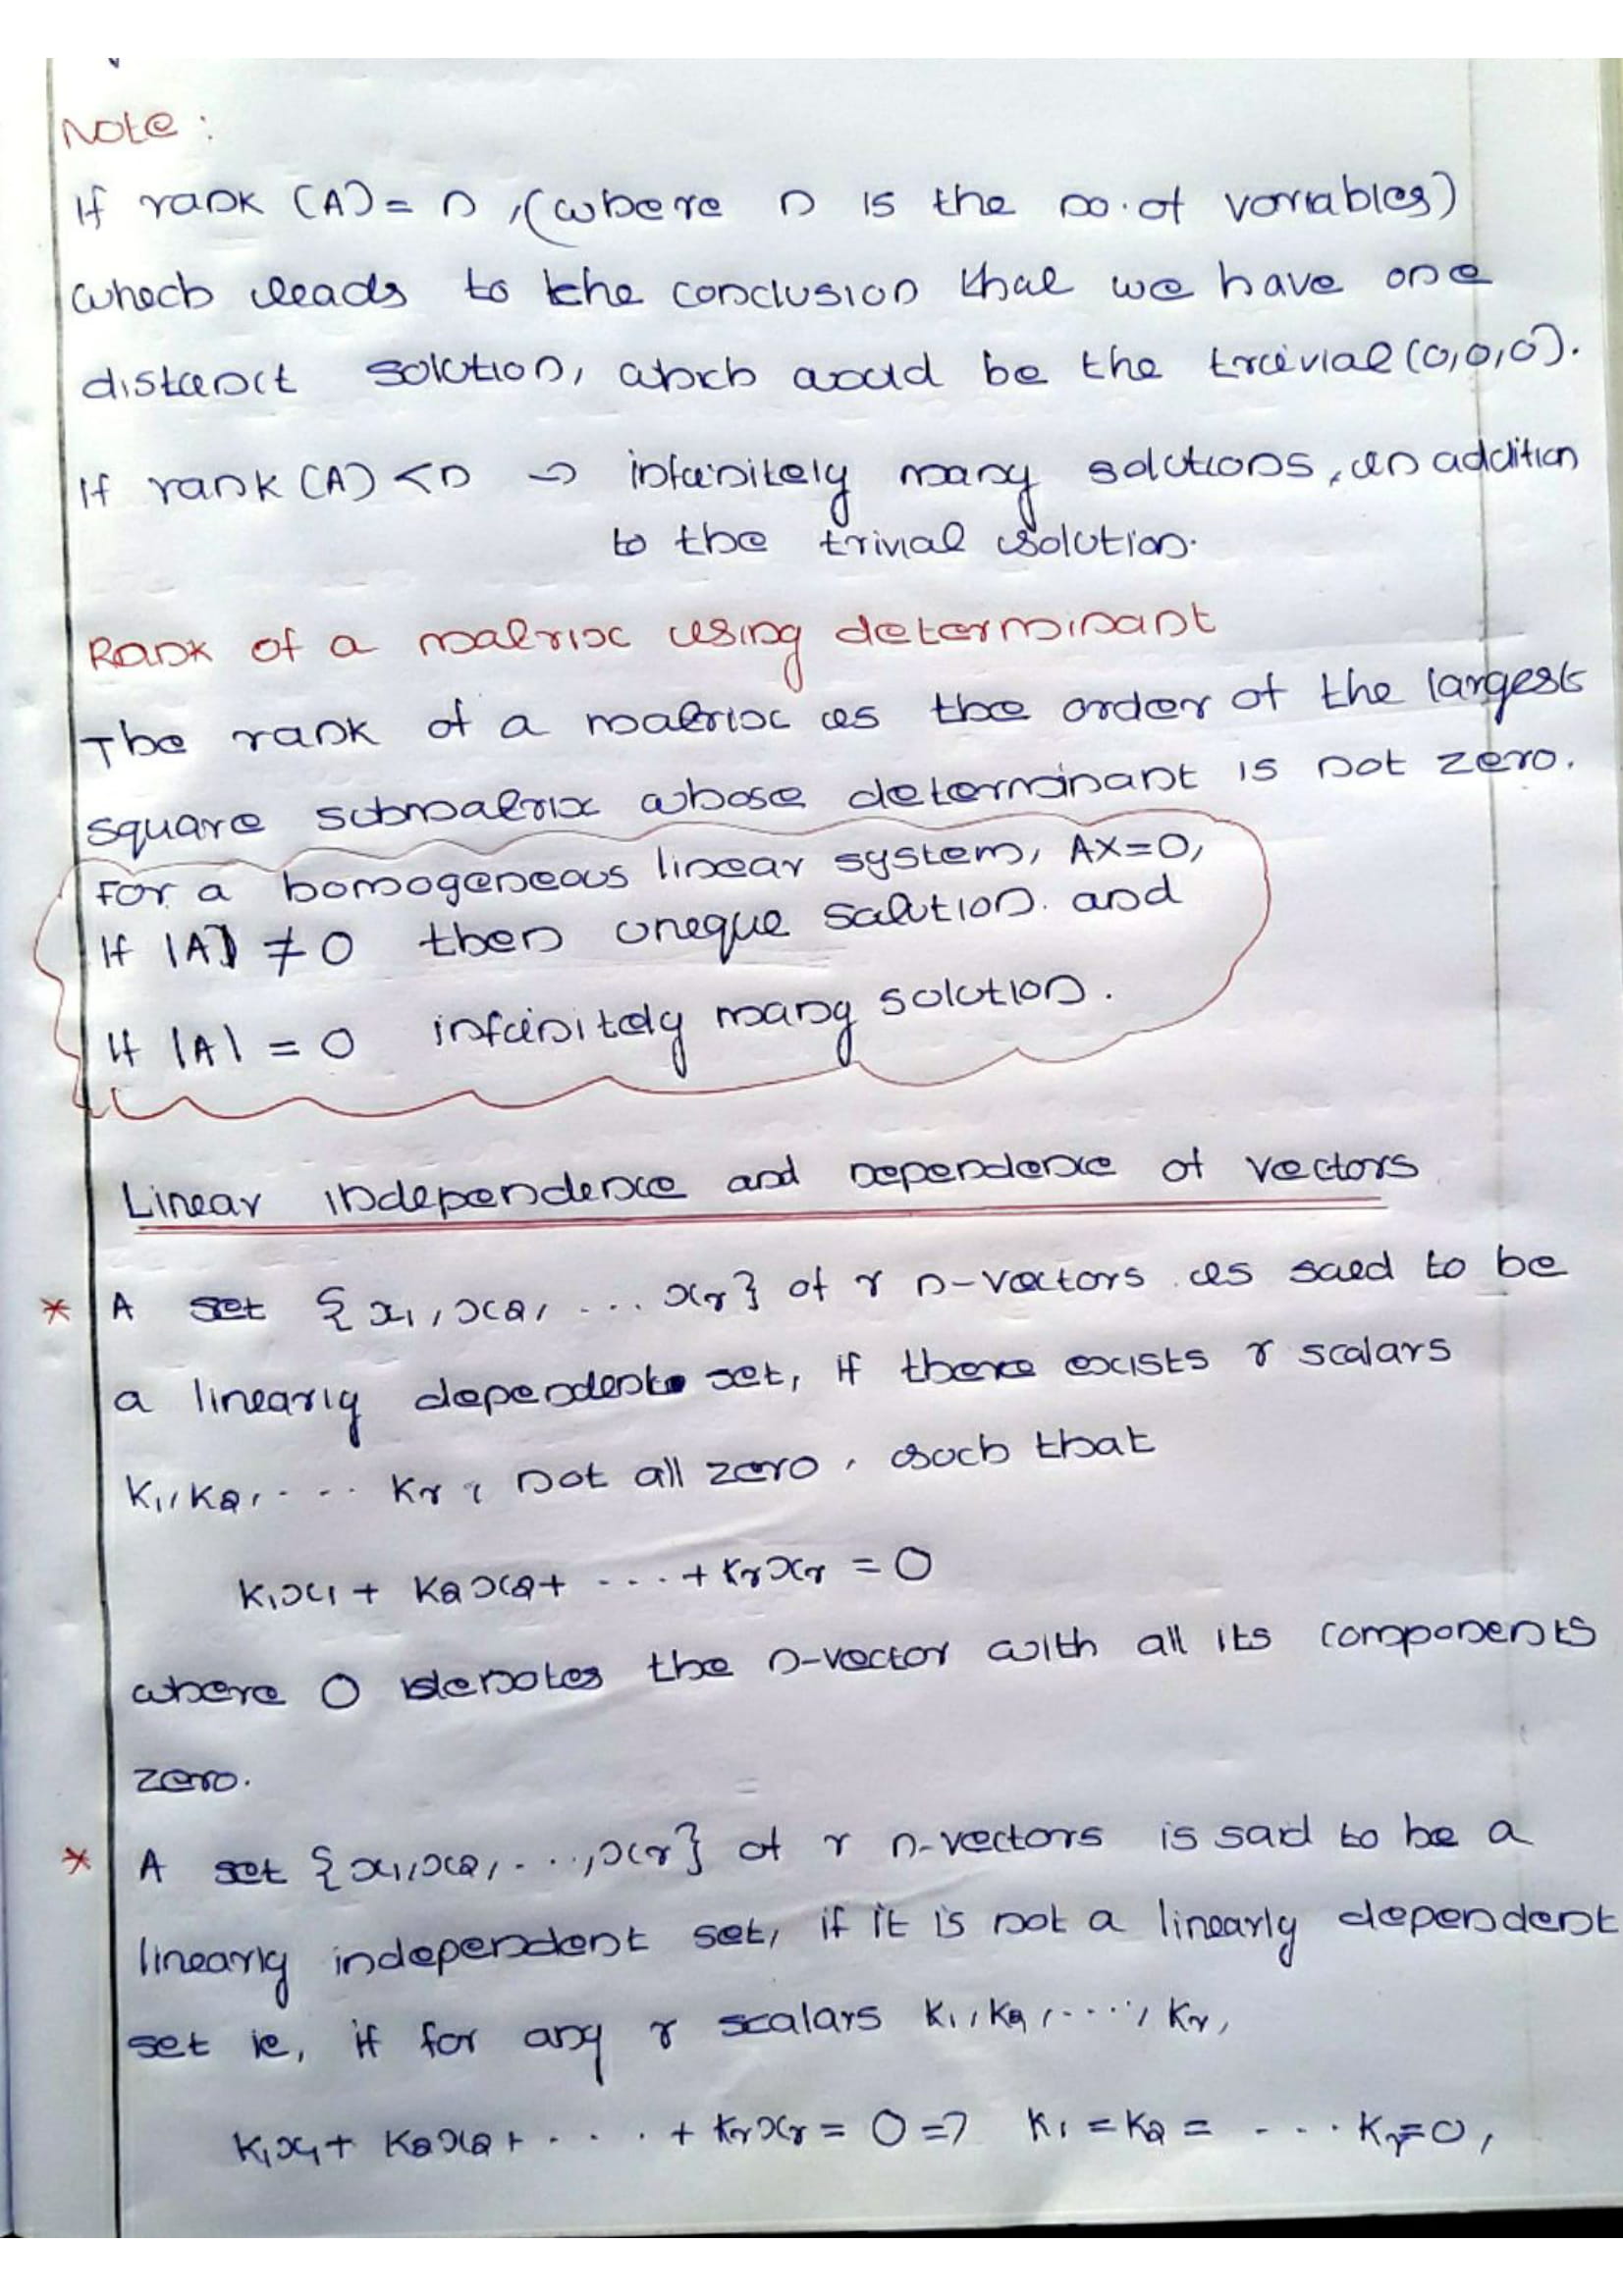 Note :
If rank (A) = n , (where n is the no. of variables)
which leads to the conclusion that we have one
distinct solution, which would be the trivial (0,0,0).
If rank (A) < n → infinitely many solutions, in addition
to the trivial solution.
Rank of a matrix using determinant
The rank of a matrix is the order of the largest
square submatrix whose determinant is not zero.
For a homogeneous linear system, AX=0,
If |A| ≠ 0 then uneque solution. and
If |A| = 0 infinitely many solution.
Linear independence and Dependence of vectors
* A set {x₁, x₂, ... xᵣ} of r n-vectors is said to be
a linearly dependent set, if there exists r scalars
k₁, k₂, ... kᵣ, not all zero, such that
k₁x₁ + k₂x₂ + ... + kᵣxᵣ = 0
where 0 denotes the n-vector with all its components
zero.
* A set {x₁, x₂, ..., xᵣ} of r n-vectors is said to be a
linearly independent set, if it is not a linearly dependent
set ie, if for any r scalars k₁, k₂, ...., kᵣ,
k₁x₁ + k₂x₂ + . . . . + kᵣxᵣ = 0 => k₁ = k₂ = - - - . kᵣ=0,